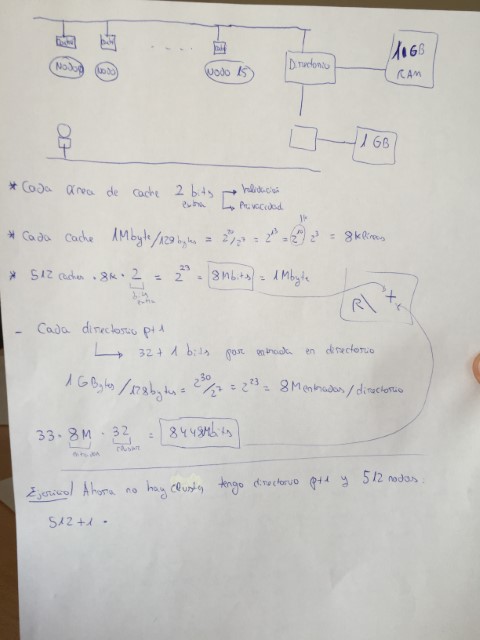 cache cache cache
Nodo Nodo .... Nodo 15
Directorio
1GB
RAM
1 GB
* Cada área de cache 2 bits extra → Validación
→ Privacidad
* Cada cache 1Mbyte/128bytes = 2^20/2^7 = 2^13 = 2^10 2^3 = 8klíneas
* 512 caches · 8k · 2 = 2^23 = 8Mbits = 1Mbyte
bits extra
R\ +
- Cada directorio p+1
→ 32+1 bits por entrada en directorio
1GBytes/128bytes = 2^30/2^7 = 2^23 = 8Mentradas/directorio
33 · 8M · 32 = 8448Mbits
entradas cluster
Ejercicio/ Ahora no hay cluster, tengo directorio p+1 y 512 nodos:
512+1 ·